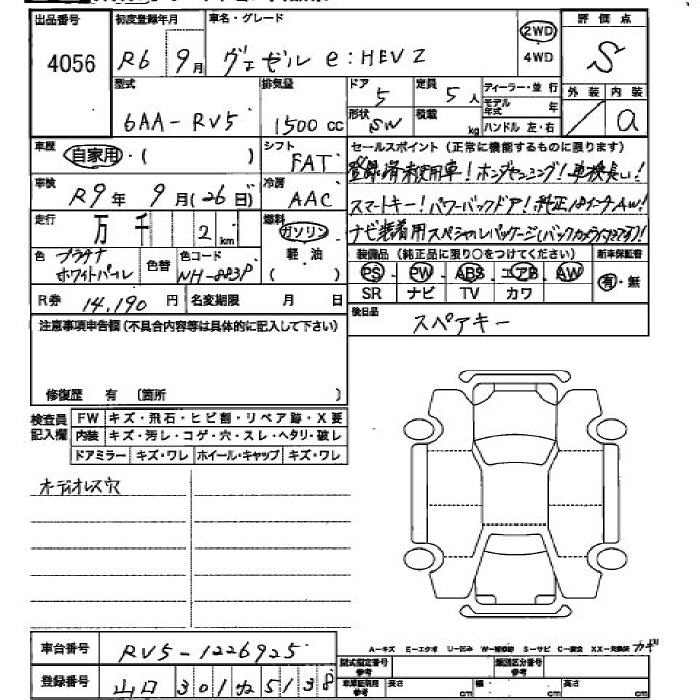 出品番号 初度登録年月 車名・グレード 評価点
4056 R6 9月 ヴェゼル e:HEV Z 2WD 4WD S
型式 排気量 ドア 定員 ディーラー・並行 外装 内装
6AA-RV5 1500cc 5 5人 モデル年式 年 / a
形状 SW 積載 kg ハンドル 左・右
車歴 自家用・( ) シフト FAT セールスポイント (正常に機能するものに限ります)
登録済未使用車!ホンダセンシング!車検長い!
車検 R9年 9月(26日) 冷房 AAC スマートキー!パワーバックドア!純正18インチAW!
走行 万 千 2km 燃料 ガソリン 軽・油 ( ) ナビ装着用スペシャルパッケージ(バックカメラ付きます)!
色 プラチナホワイトパール 色替 色コード NH-883P 装備品 (純正品に限り○をつけてください) 新車保証書
PS・PW・ABS・エアB・AW 有・無
SR ナビ TV カワ
R券 14,190円 名変期限 月 日 後日品 スペアキー
注意事項申告欄 (不具合内容等は具体的に記入して下さい)
修復歴 有 (箇所 )
検査員記入欄 FW キズ・飛石・ヒビ割・リペア跡・X要
内装 キズ・汚レ・コゲ・穴・スレ・ヘタリ・破レ
ドアミラー キズ・ワレ ホイール・キャップ キズ・ワレ
オーディオレス穴
A-キズ E-エクボ U-凹み W-補修跡 S-サビ C-腐食 XX-交換済 カギ
車台番号 RV5-1226925 型式指定番号 参考 類別区分番号 参考
登録番号 山口 301 な 5138 車庫証明用 参考 長さ cm 幅 cm 高さ cm